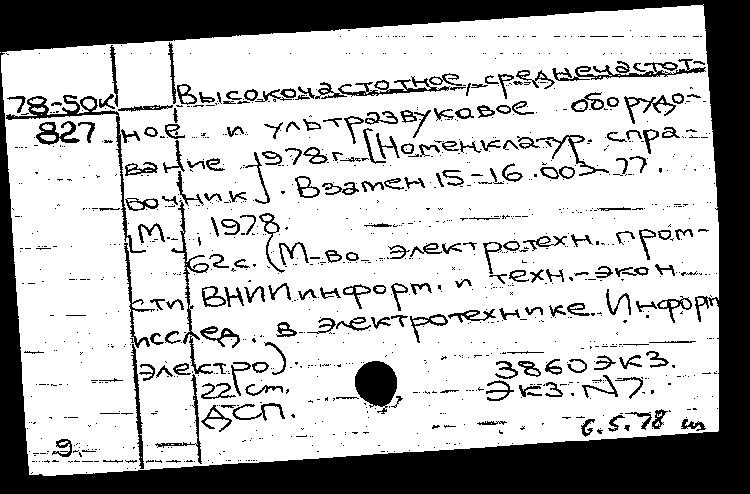 78-50к Высокочастотное, среднечастот-
827 ное и ультразвуковое оборудо-
вание 1978г. [Номенклатур. спра-
вочник]. Взамен 15-16.003-77.
[М.], 1978.
62с. (М-во электротехн. пром-
сти. ВНИИ информ. и техн.-экон.
исслед. в электротехнике. Информ
электро).
22 см. 3860 экз.
ДСП. Экз. N7.
9. 6.5.78